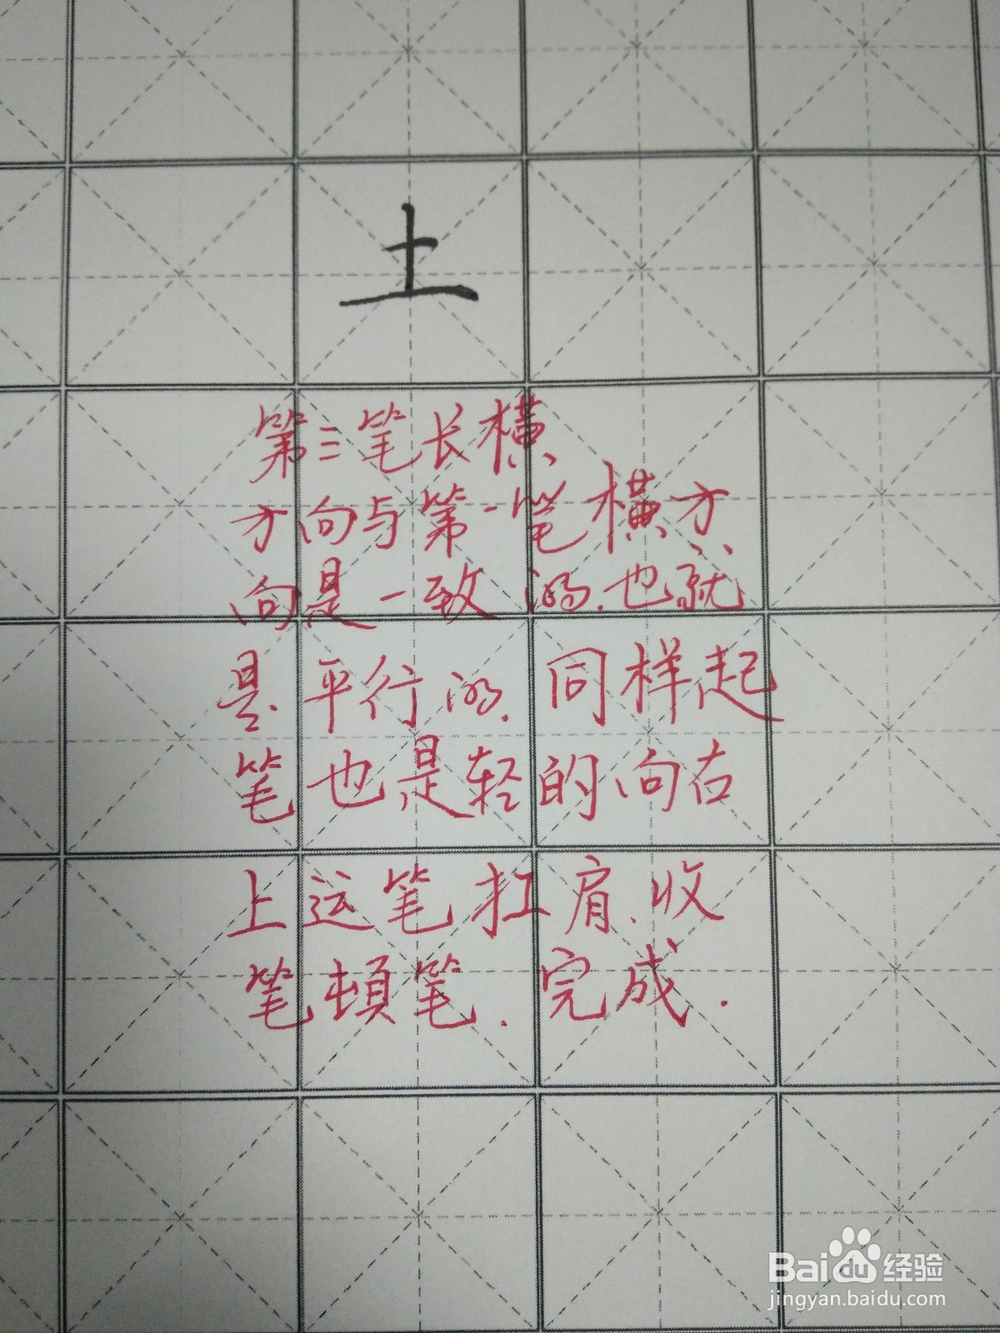 土
第三笔长横
方向与第一笔横方
向是一致的.也就
是.平行的.同样起
笔也是轻的向右
上运笔扛肩.收
笔頓笔.完成.
Baidu经验
jingyan.baidu.com